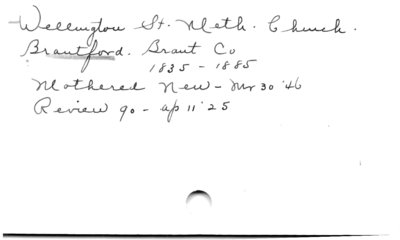 Wellington St. Meth. Church.
Brantford. Brant Co
1835 - 1885
Mothered New - Mr 30 '46
Review 90 - Ap 11 '25